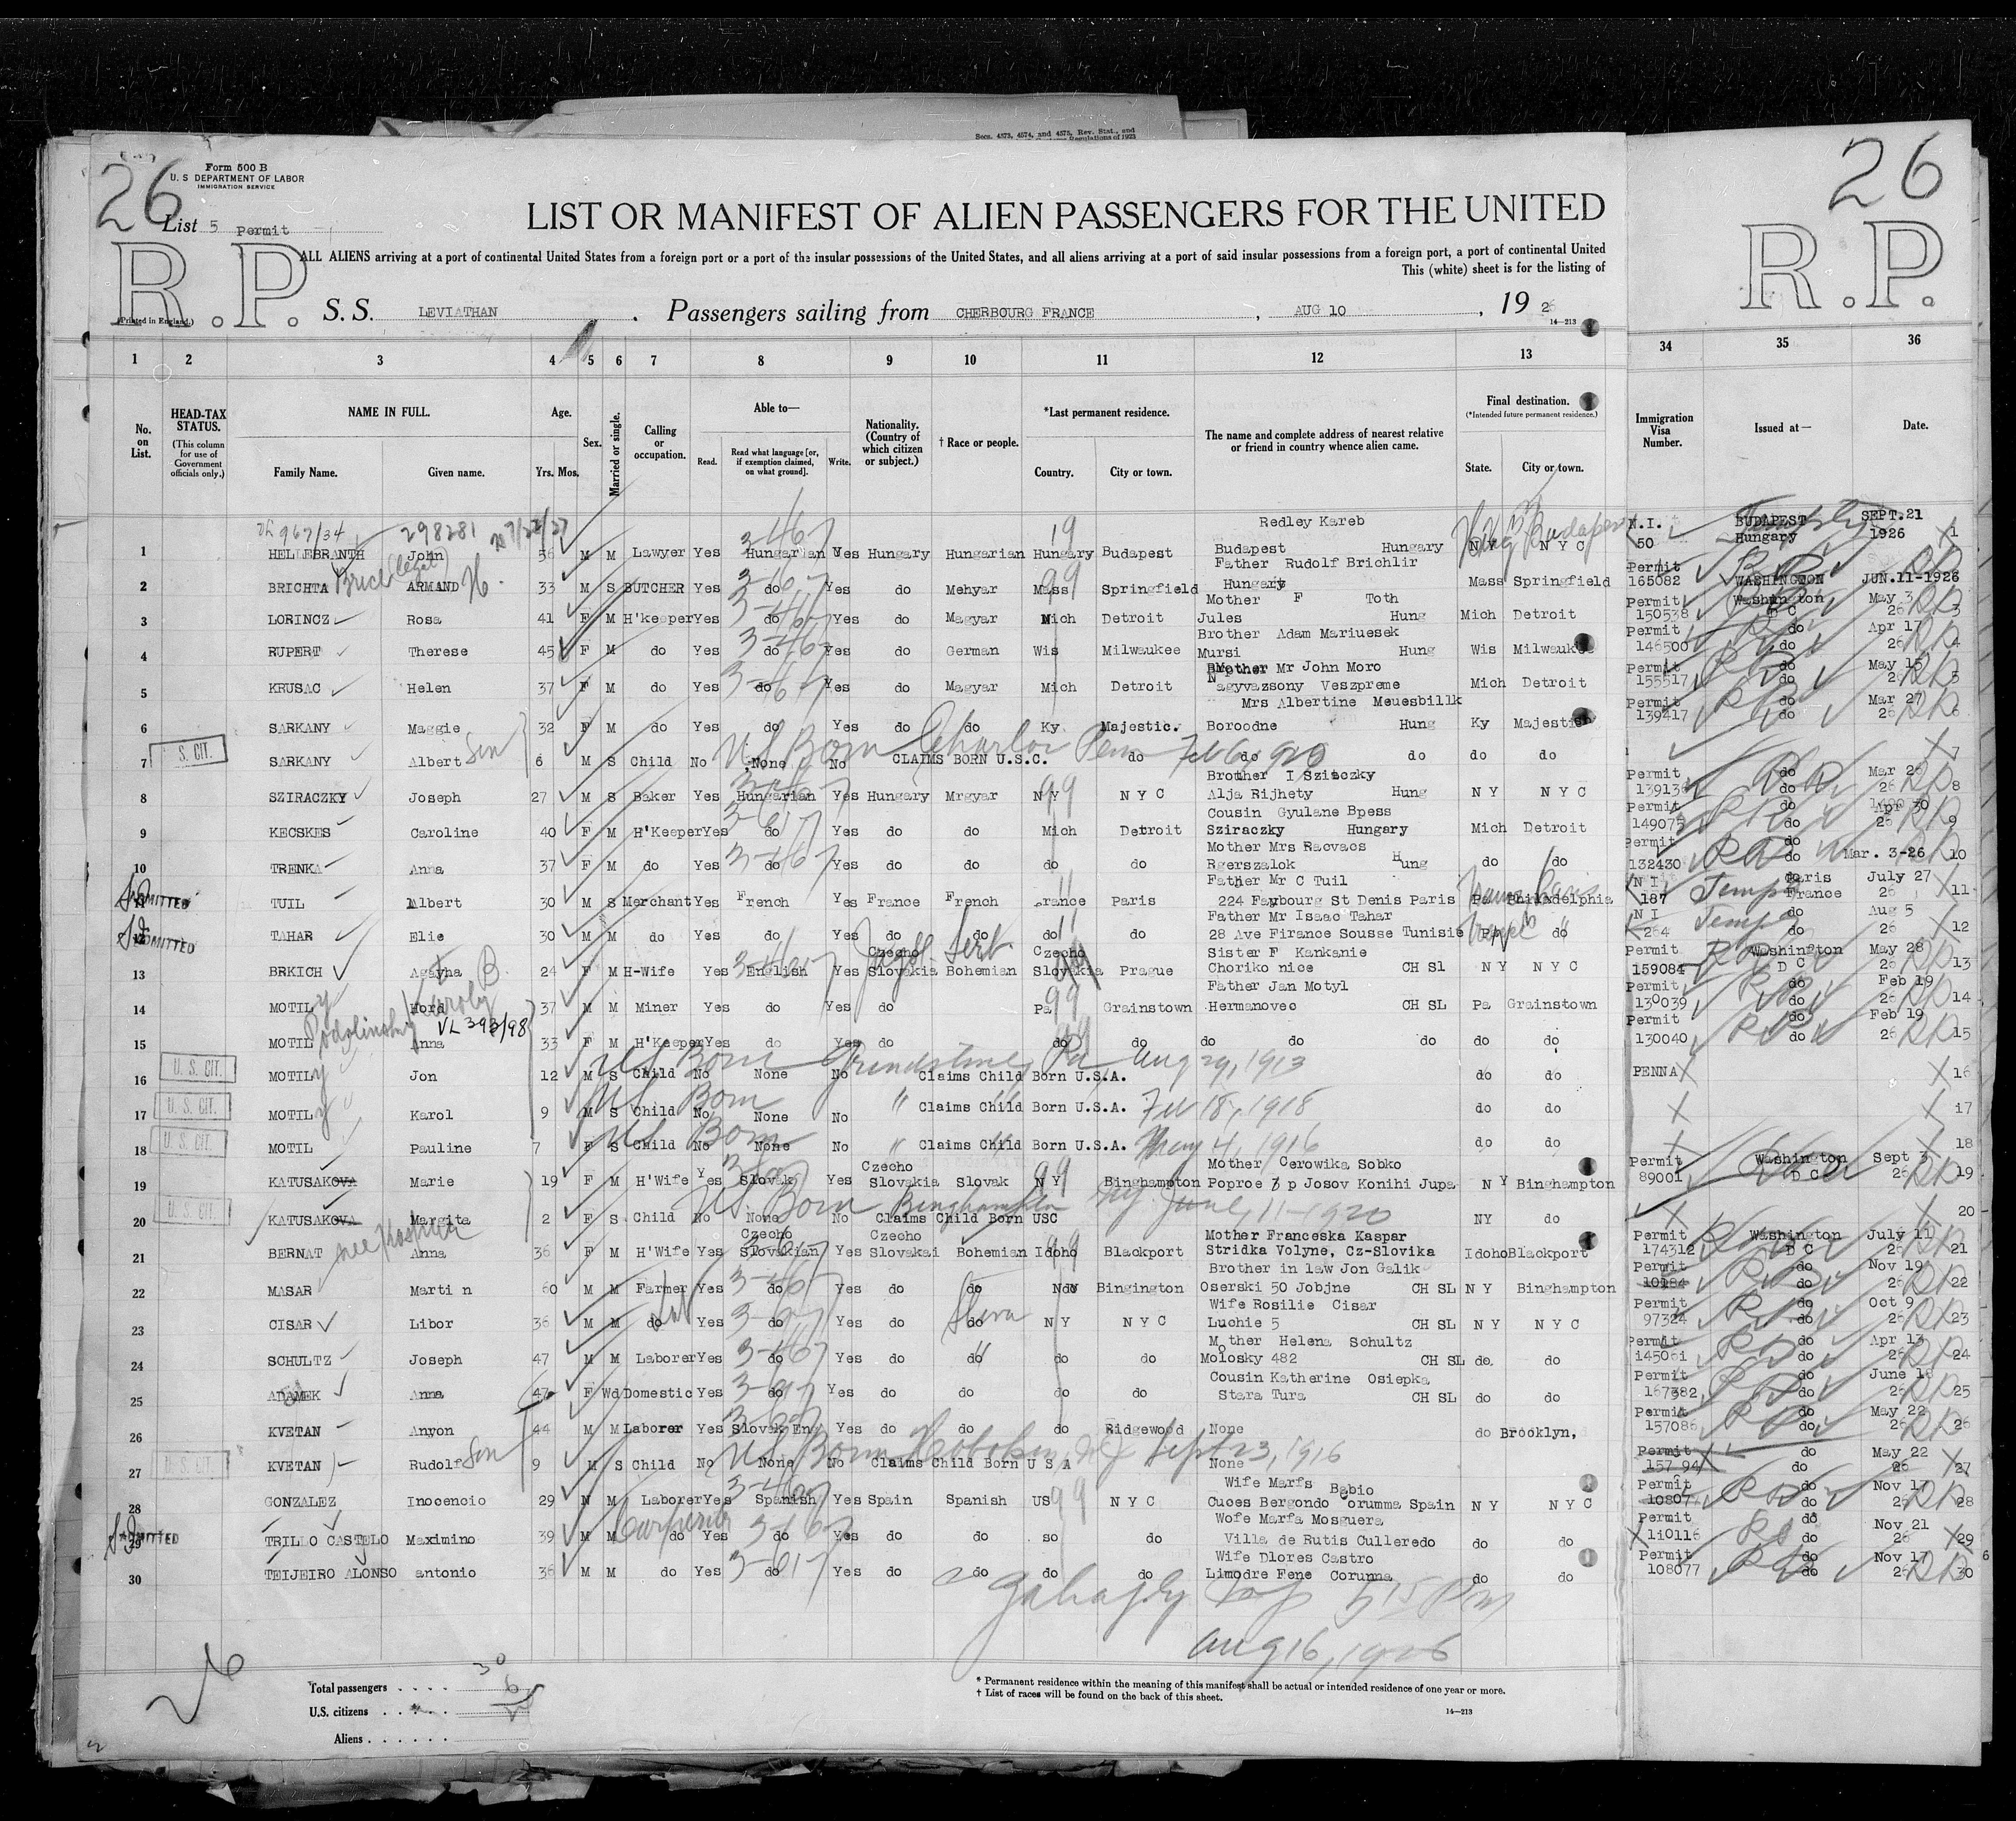 Secs. 4573, 4574, and 4575, Rev. Stat., and
Regulations of 1923
26
Form 500 B
U. S DEPARTMENT OF LABOR
IMMIGRATION SERVICE
List 5 Permit
R.P.
(Printed in England.)
LIST OR MANIFEST OF ALIEN PASSENGERS FOR THE UNITED
ALL ALIENS arriving at a port of continental United States from a foreign port or a port of the insular possessions of the United States, and all aliens arriving at a port of said insular possessions from a foreign port, a port of continental United
This (white) sheet is for the listing of
S. S. LEVIATHAN . Passengers sailing from CHERBOURG FRANCE , AUG 10 , 19 26
14—213
26
R.P.
1 2 3 4 5 6 7 8 9 10 11 12 13 34 35 36
No. on List.
HEAD-TAX STATUS.
(This column for use of Government officials only.)
NAME IN FULL.
Family Name. Given name.
Age.
Yrs. Mos.
Sex.
Married or single.
Calling or occupation.
Able to—
Read. Read what language [or, if exemption claimed, on what ground]. Write.
Nationality. (Country of which citizen or subject.)
† Race or people.
*Last permanent residence.
Country. City or town.
The name and complete address of nearest relative or friend in country whence alien came.
Final destination.
(*Intended future permanent residence.)
State. City or town.
Immigration Visa Number.
Issued at—
Date.
967/34 298281 7/22/27
Redley Kareb
1 HELLEBRANTH John 56 M M Lawyer Yes Hungarian Yes Hungary Hungarian Hungary Budapest Budapest Hungary N Y N Y C N.I. 50 BUDAPEST Hungary SEPT.21 1926 1
Father Rudolf Brichlir
2 BRICHTA ARMAND H. 33 M S BUTCHER Yes do Yes do Mehyar Mass Springfield Hungary Mass Springfield Permit 165082 WASHINGTON JUN.11-1926
Mother F Toth
3 LORINCZ Rosa 41 F M H'keeper Yes do Yes do Magyar Mich Detroit Jules Hung Mich Detroit Permit 150538 Washington D C May 3 26 3
Brother Adam Mariuesek
4 RUPERT Therese 45 F M do Yes do Yes do German Wis Milwaukee Mursi Hung Wis Milwaukee Permit 146500 do Apr 17 26 4
Brother Mr John Moro
5 KRUSAC Helen 37 F M do Yes do Yes do Magyar Mich Detroit Nagyvazsony Veszpreme Mich Detroit Permit 155517 do May 15 26 5
Mrs Albertine Meuesbillk
6 SARKANY Maggie 32 F M do Yes do Yes do do Ky Majestic. Boroodne Hung Ky Majestic Permit 139417 do Mar 27 26 6
U. S. CIT.
7 SARKANY Albert Son 6 M S Child No None No CLAIMS BORN U.S.C. do do do do do 7
US Born Feb 6, 1920
Brother I Sziaczky
8 SZIRACZKY Joseph 27 M S Baker Yes Hungarian Yes Hungary Mrgyar N Y N Y C Alja Rijhety Hung N Y N Y C Permit do Mar 26 26 8
Cousin Gyulane Bpess
9 KECSKES Caroline 40 F M H'Keeper Yes do Yes do do Mich Detroit Sziraczky Hungary Mich Detroit Permit 149075 do Apr 30 26 9
Mother Mrs Racvacs
10 TRENKA Anna 37 F M do Yes do Yes do do do do Rgerszalok Hung do do Permit 132430 do Mar. 3-26 10
Father Mr C Tuil
ADMITTED
11 TUIL Albert 30 M S Merchant Yes French Yes France French France Paris 224 Faubourg St Denis Paris Pa Philadelphia N I 187 Paris France July 27 26 11
Father Mr Isaac Tahar
ADMITTED
12 TAHAR Elie 30 M M do Yes do Yes do do do do 28 Ave Firance Sousse Tunisie Pa do N I 264 do Aug 5 26 12
Sister F Kankanie
13 BRKICH Agayna B. 24 F M H-Wife Yes English Yes Czecho Slovakia Bohemian Czecho Slovakia Prague Choriko nice CH Sl N Y N Y C Permit 159084 Washinfton D C May 28 26 13
Father Jan Motyl
14 MOTILy Hora 37 M M Miner Yes do Yes do Pa Grainstown Hermanovec CH SL Pa Grainstown Permit 130039 do Feb 19 26 14
VL 393/98
15 MOTIL Anna 33 F M H'Keeper Yes do Yes do do do do do do do Permit 130040 do Feb 19 26 15
U. S. CIT.
16 MOTILy Jon 12 M S Child No None No Claims Child Born U.S.A. do do PENNA 16
US Born Pa Aug 29, 1913
U. S. CIT.
17 MOTILy Karol 9 M S Child No None No Claims Child Born U.S.A. do do 17
US Born " Feb 18, 1918
U. S. CIT.
18 MOTIL Pauline 7 F S Child No None No Claims Child Born U.S.A. do do 18
US Born " May 4, 1916
Mother Cerowika Sobko
19 KATUSAKOVA Marie 19 F M H'Wife Yes Slovak Yes Czecho Slovakia Slovak N Y Binghampton Poproe 7 p Josov Konihi Jupa N Y Binghampton Permit 89001 Washington D C Sept 3 26 19
U. S. CIT.
20 KATUSAKOVA Margita 2 F S Child No None No Claims Child Born USC NY do 20
US Born Binghampton NY. June, 11-1920
Mother Franceska Kaspar
21 BERNAT Anna 36 F M H'Wife Yes Czecho Slovakian Yes Czecho Slovakai Bohemian Idoho Blackport Stridka Volyne, Cz-Slovika Idoho Blackport Permit 174312 Washington D C July 11 26 21
Brother in law Jon Galik
22 MASAR Marti n 60 M M Farmer Yes do Yes do do Bingington Oserski 50 Jobjne CH SL N Y Binghampton Permit 10184 do Nov 19 26 22
Wife Rosilie Cisar
23 CISAR Libor 36 M M do Yes do Yes do do N Y N Y C Luchie 5 CH SL N Y N Y C Permit 97324 do Oct 9 26 23
Mother Helena Schultz
24 SCHULTZ Joseph 47 M M Laborer Yes do Yes do do do do Molosky 482 CH SL do. do Permit 145061 do Apr 13 26 24
Cousin Katherine Osiepka
25 ADAMEK Anna 47 F Wd Domestic Yes do Yes do do do do Stara Tura CH SL do do Permit 167382 do June 18 26 25
26 KVETAN Anyon 44 M M Laborer Yes Slovak Eng Yes do do do Ridgewood None do Brooklyn, Permit 157086 do May 22 26 26
U. S. CIT.
27 KVETAN Rudolf Son 9 M S Child No None No Claims Child Born U S A None Permit 157 94 do May 22 26 27
US Born Hoboken, NJ Sept 23, 1916
Wife Marfs Babio
28 GONZALEZ Inocencio 29 N M Laborer Yes Spanish Yes Spain Spanish US N Y C Cuoes Bergondo Corumma Spain N Y N Y C Permit 108077 do Nov 17 26 28
Wofe Marfa Mosguera
ADMITTED
29 TRILLO CASTELO Maximino 39 M M do Yes do Yes do do so do Villa de Rutis Culleredo do do Permit 110116 do Nov 21 26 29
Carpenter
Wife Dlores Castro
30 TEIJEIRO ALONSO antonio 36 M M do Yes do Yes do do do do Limodre Fene Corunna do do Permit 108077 do Nov 17 26 30
5 15 PM
Aug 16, 1926
Total passengers . . . . 30
U.S. citizens . . . . . 6
Aliens . . . . . .
* Permanent residence within the meaning of this manifest shall be actual or intended residence of one year or more.
† List of races will be found on the back of this sheet.
14—213